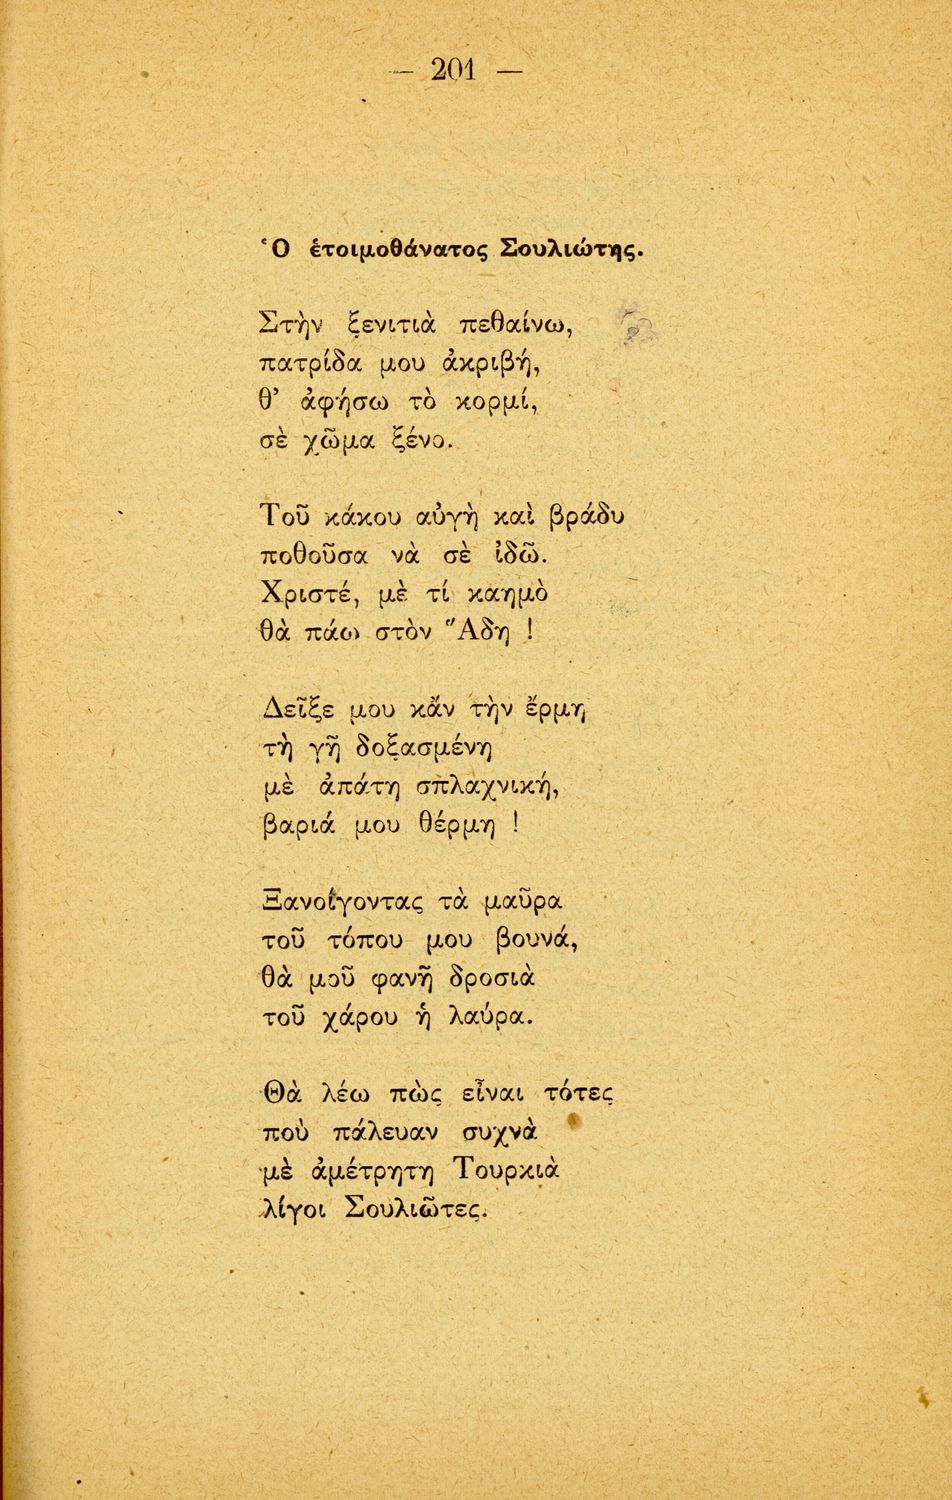 — 201 —
Ὁ ἑτοιμοθάνατος Σουλιώτης.
Στὴν ξενιτιὰ πεθαίνω,
πατρίδα μου ἀκριβή,
θ’ ἀφήσω τὸ κορμί,
σὲ χῶμα ξένο.
Τοῦ κάκου αὐγὴ καὶ βράδυ
ποθοῦσα νὰ σὲ ἰδῶ.
Χριστέ, μὲ τί καημὸ
θὰ πάω στὸν Ἅδη !
Δεῖξε μου κἄν τὴν ἔρμη
τὴ γῆ δοξασμένη
μὲ ἀπάτη σπλαχνική,
βαριά μου θέρμη !
Ξανοίγοντας τὰ μαῦρα
τοῦ τόπου μου βουνά,
θὰ μοῦ φανῆ δροσιὰ
τοῦ χάρου ἡ λαύρα.
Θὰ λέω πὼς εἶναι τότες
ποὺ πάλευαν συχνὰ
μὲ ἀμέτρητη Τουρκιὰ
λίγοι Σουλιῶτες.